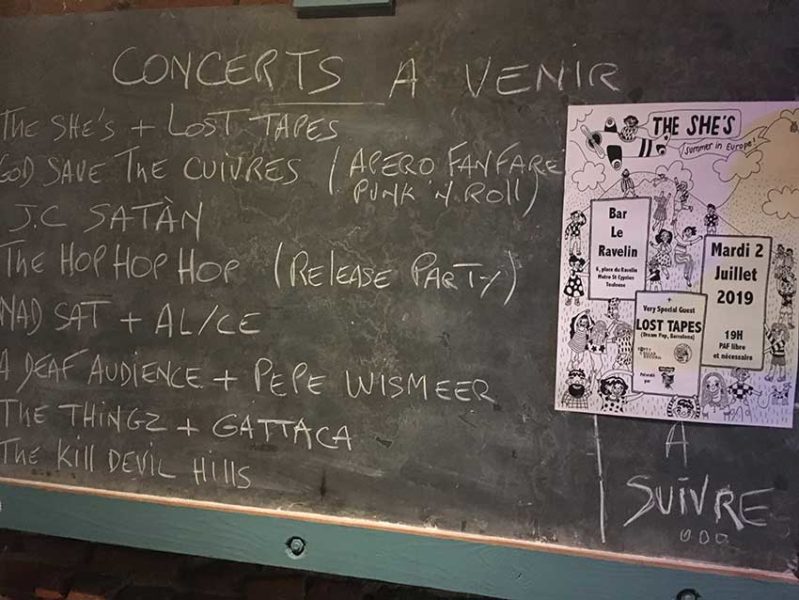 CONCERTS A VENIR
THE SHE'S + LOST TAPES
GOD SAVE THE CUIVRES (APERO FANFARE
PUNK 'N ROLL)
J.C SATÀN
THE HOP HOP HOP (RELEASE PARTY)
NAD SAT + AL/CE
A DEAF AUDIENCE + PEPE WISMEER
THE THINGZ + GATTACA
THE KILL DEVIL HILLS
THE SHE'S
Summer in Europe!
Bar
Le
Ravelin
6, place du Ravelin
Métro St Cyprien
Toulouse
Mardi 2
Juillet
2019
19H
PAF libre
et nécessaire
+
Very Special Guest
LOST TAPES
(Dream Pop, Barcelona)
A
SUIVRE
...